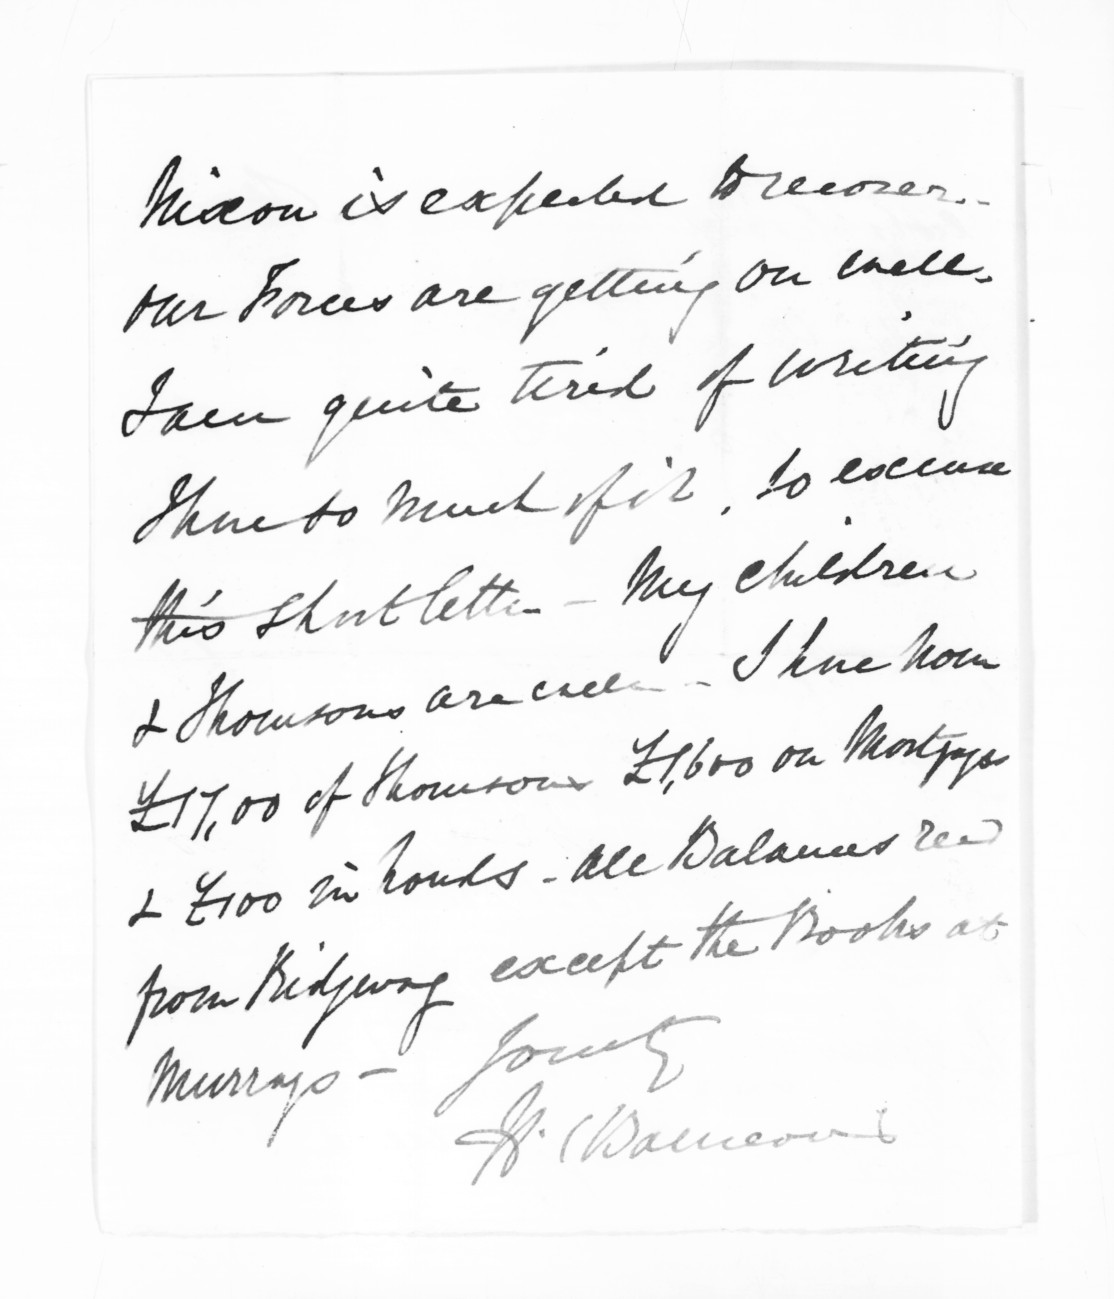 Nixon is expected to recover -
our Forces are getting on well.
I am quite tired of writing
I have so much of it, so excuse
this short letter - My children
& Thomsons are well - I have now
£17,00 of Thomsons £1,600 on Mortgages
& £100 in hands - All Balances recd
from Ridgway except the Books at
Murrays -
H.